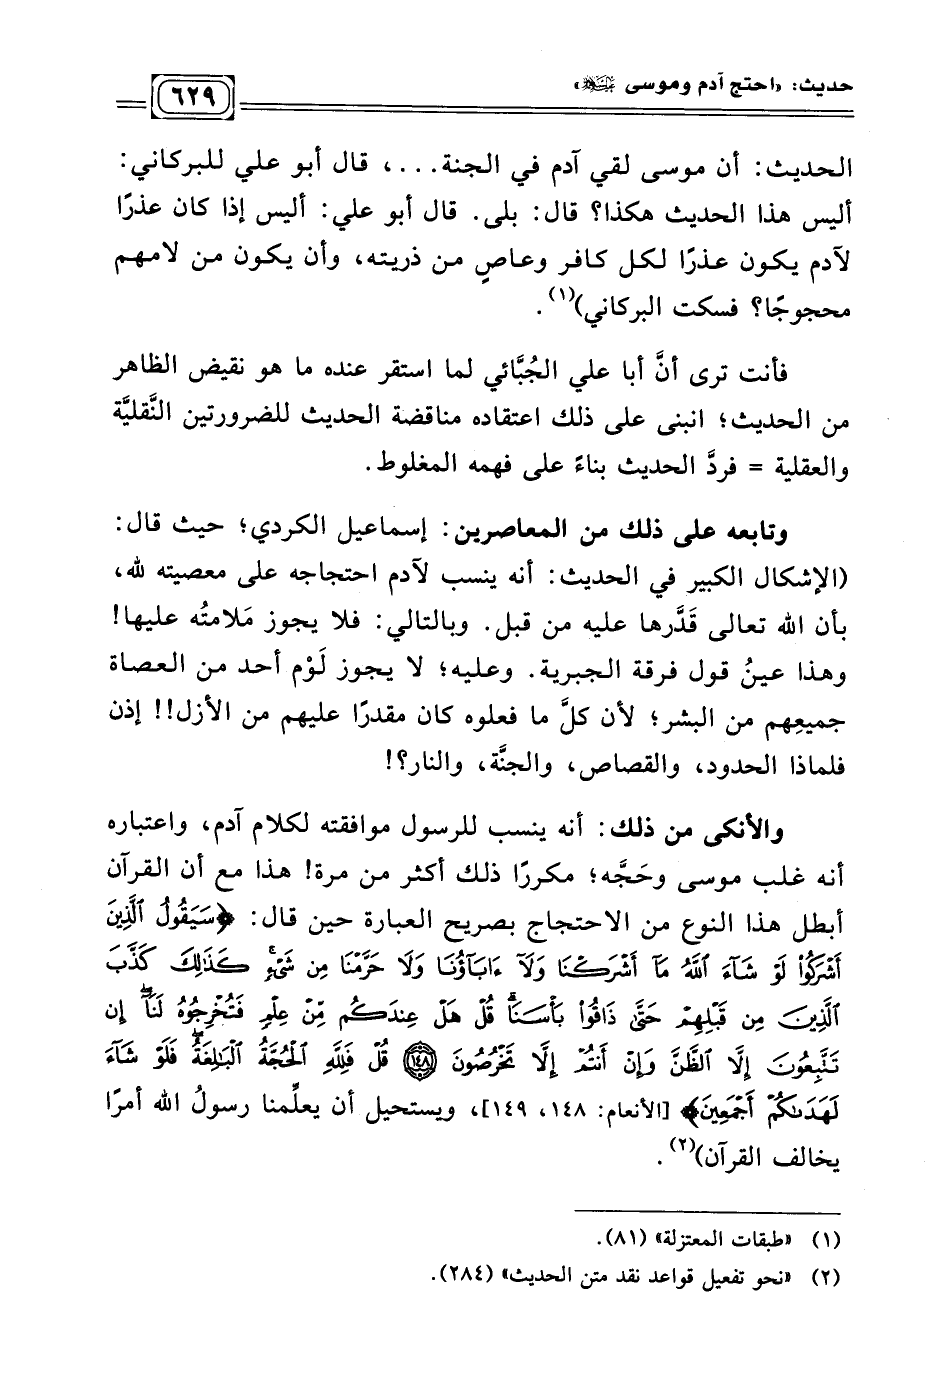 حديث: «احتج آدم وموسى ﷺ»
٦٢٩
الحديث: أن موسى لقي آدم في الجنة...، قال أبو علي للبركاني:
أليس هذا الحديث هكذا؟ قال: بلى. قال أبو علي: أليس إذا كان عذرًا
لآدم يكون عذرًا لكل كافر وعاصٍ من ذريته، وأن يكون من لامهم
محجوجًا؟ فسكت البركاني)(١).
فأنت ترى أنَّ أبا علي الجُبَّائي لما استقر عنده ما هو نقيض الظاهر
من الحديث؛ انبنى على ذلك اعتقاده مناقضة الحديث للضرورتين النَّقليَّة
والعقلية = فردَّ الحديث بناءً على فهمه المغلوط.
وتابعه على ذلك من المعاصرين: إسماعيل الكردي؛ حيث قال:
(الإشكال الكبير في الحديث: أنه ينسب لآدم احتجاجه على معصيته لله،
بأن الله تعالى قَدَّرها عليه من قبل. وبالتالي: فلا يجوز مَلامتُه عليها!
وهذا عينُ قول فرقة الجبرية. وعليه؛ لا يجوز لَوْم أحد من العصاة
جميعِهم من البشر؛ لأن كلَّ ما فعلوه كان مقدرًا عليهم من الأزل!! إذن
فلماذا الحدود، والقصاص، والجنَّة، والنار؟!
والأنكى من ذلك: أنه ينسب للرسول موافقته لكلام آدم، واعتباره
أنه غلب موسى وحَجَّه؛ مكررًا ذلك أكثر من مرة! هذا مع أن القرآن
أبطل هذا النوع من الاحتجاج بصريح العبارة حين قال: ﴿سَيَقُولُ ٱلَّذِينَ
أَشْرَكُواْ لَوْ شَآءَ ٱللَّهُ مَآ أَشْرَكْنَا وَلَآ ءَابَآؤُنَا وَلَا حَرَّمْنَا مِن شَىْءٍۚ كَذَٰلِكَ كَذَّبَ
ٱلَّذِينَ مِن قَبْلِهِمْ حَتَّىٰ ذَاقُواْ بَأْسَنَاۗ قُلْ هَلْ عِندَكُم مِّنْ عِلْمٍ فَتُخْرِجُوهُ لَنَآۖ إِن
تَتَّبِعُونَ إِلَّا ٱلظَّنَّ وَإِنْ أَنتُمْ إِلَّا تَخْرُصُونَ ١٤٨ قُلْ فَلِلَّهِ ٱلْحُجَّةُ ٱلْبَٰلِغَةُۖ فَلَوْ شَآءَ
لَهَدَىٰكُمْ أَجْمَعِينَ﴾ [الأنعام: ١٤٨، ١٤٩]، ويستحيل أن يعلِّمنا رسولُ الله أمرًا
يخالف القرآن)(٢).
(١) «طبقات المعتزلة» (٨١).
(٢) «نحو تفعيل قواعد نقد متن الحديث» (٢٨٤).